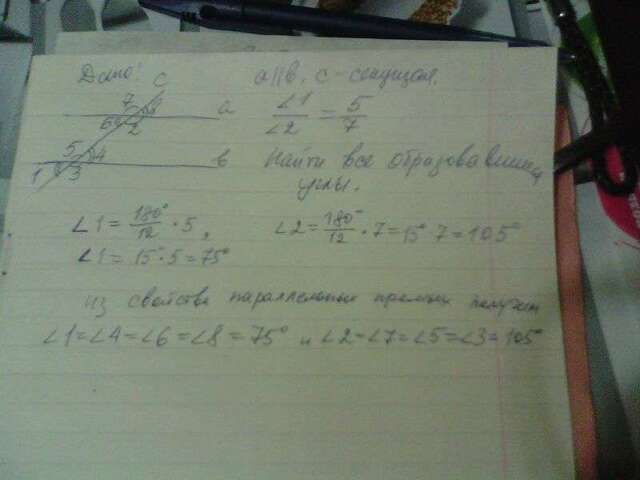 Дано: c a||в, c - секущая.
7 8 a ∠1/∠2 = 5/7
6 2
5 4 в Найти все образовавшиеся
1 3 углы.
∠1 = 180°/12 · 5, ∠2 = 180°/12 · 7 = 15° 7 = 105°
∠1 = 15° · 5 = 75°
из свойств параллельных прямых получим
∠1 = ∠4 = ∠6 = ∠8 = 75° и ∠2 = ∠7 = ∠5 = ∠3 = 105°